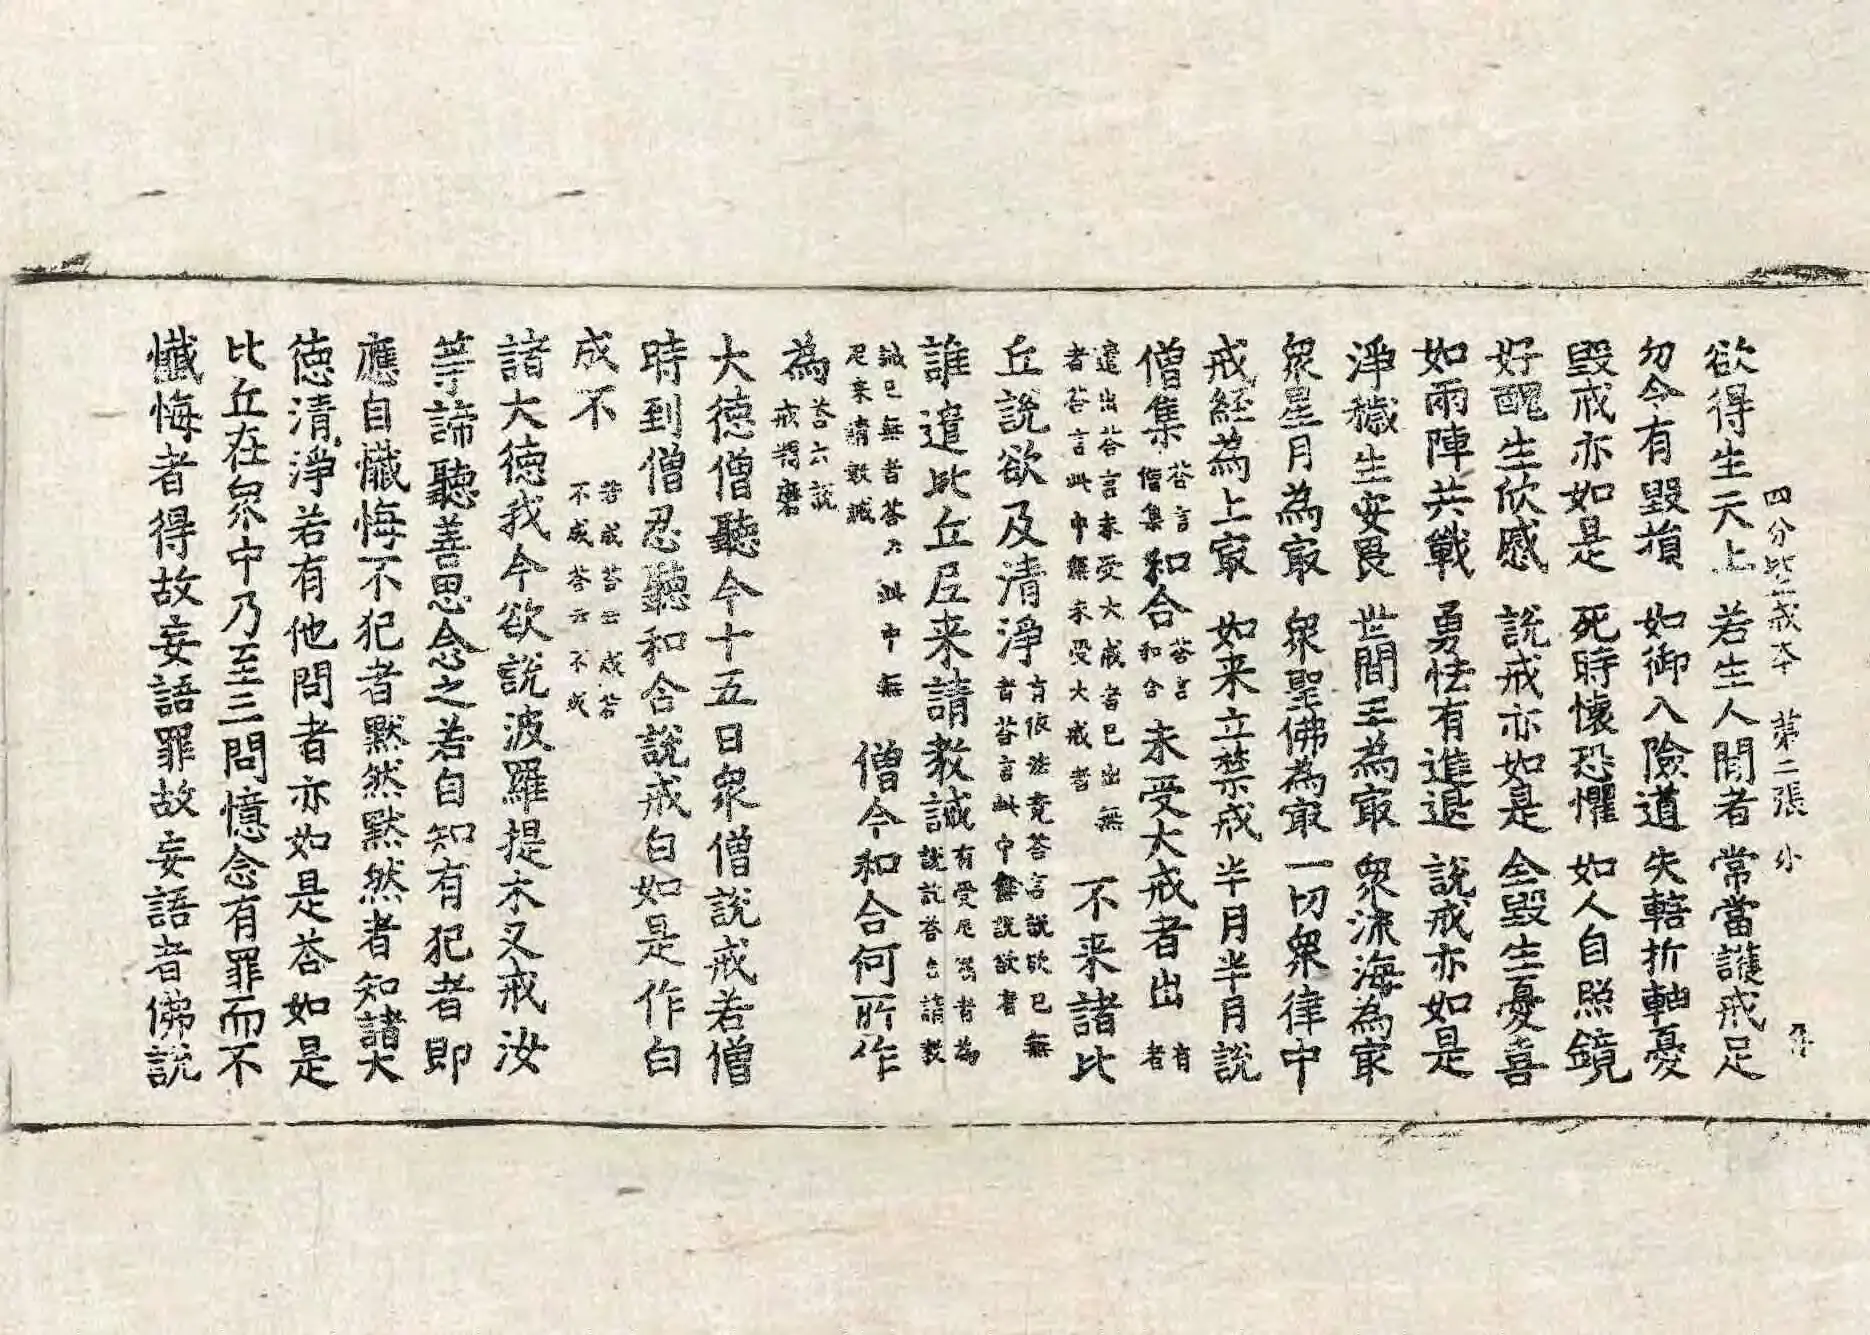 四分比丘戒本 第二張 外
欲得生天上 若生人間者 常當護戒足
勿令有毀損 如御入險道 失轄折軸憂
毀戒亦如是 死時懷恐懼 如人自照鏡
好醜生欣慼 說戒亦如是 全毀生憂喜
如兩陣共戰 勇怯有進退 說戒亦如是
淨穢生安畏 世間王為㝡 眾流海為㝡
眾星月為㝡 眾聖佛為㝡 一切眾律中
戒經為上㝡 如来立禁戒 半月半月說
僧集 荅言僧集 和合 荅言和合 未受大戒者出 有者
遣出荅言未受大戒者已出無者荅言此中無未受大戒者 不来諸比
丘說欲及清淨 有依法竟荅言說欲已無者荅言此中無說欲者
誰遣比丘尼来請教誡 有受尼囑者為說說荅言請教
誡已無者荅云此中無尼来請教誡 僧今和合何所作
為 荅云說戒羯磨
大德僧聽今十五日眾僧說戒若僧
時到僧忍聽和合說戒白如是作白
成不 若成荅云成若不成荅云不成
諸大德我今欲說波羅提木叉戒汝
等諦聽善思念之若自知有犯者即
應自懺悔不犯者默然默然者知諸大
德清淨若有他問者亦如是荅如是
比丘在眾中乃至三問憶念有罪而不
懺悔者得故妄語罪故妄語者佛說